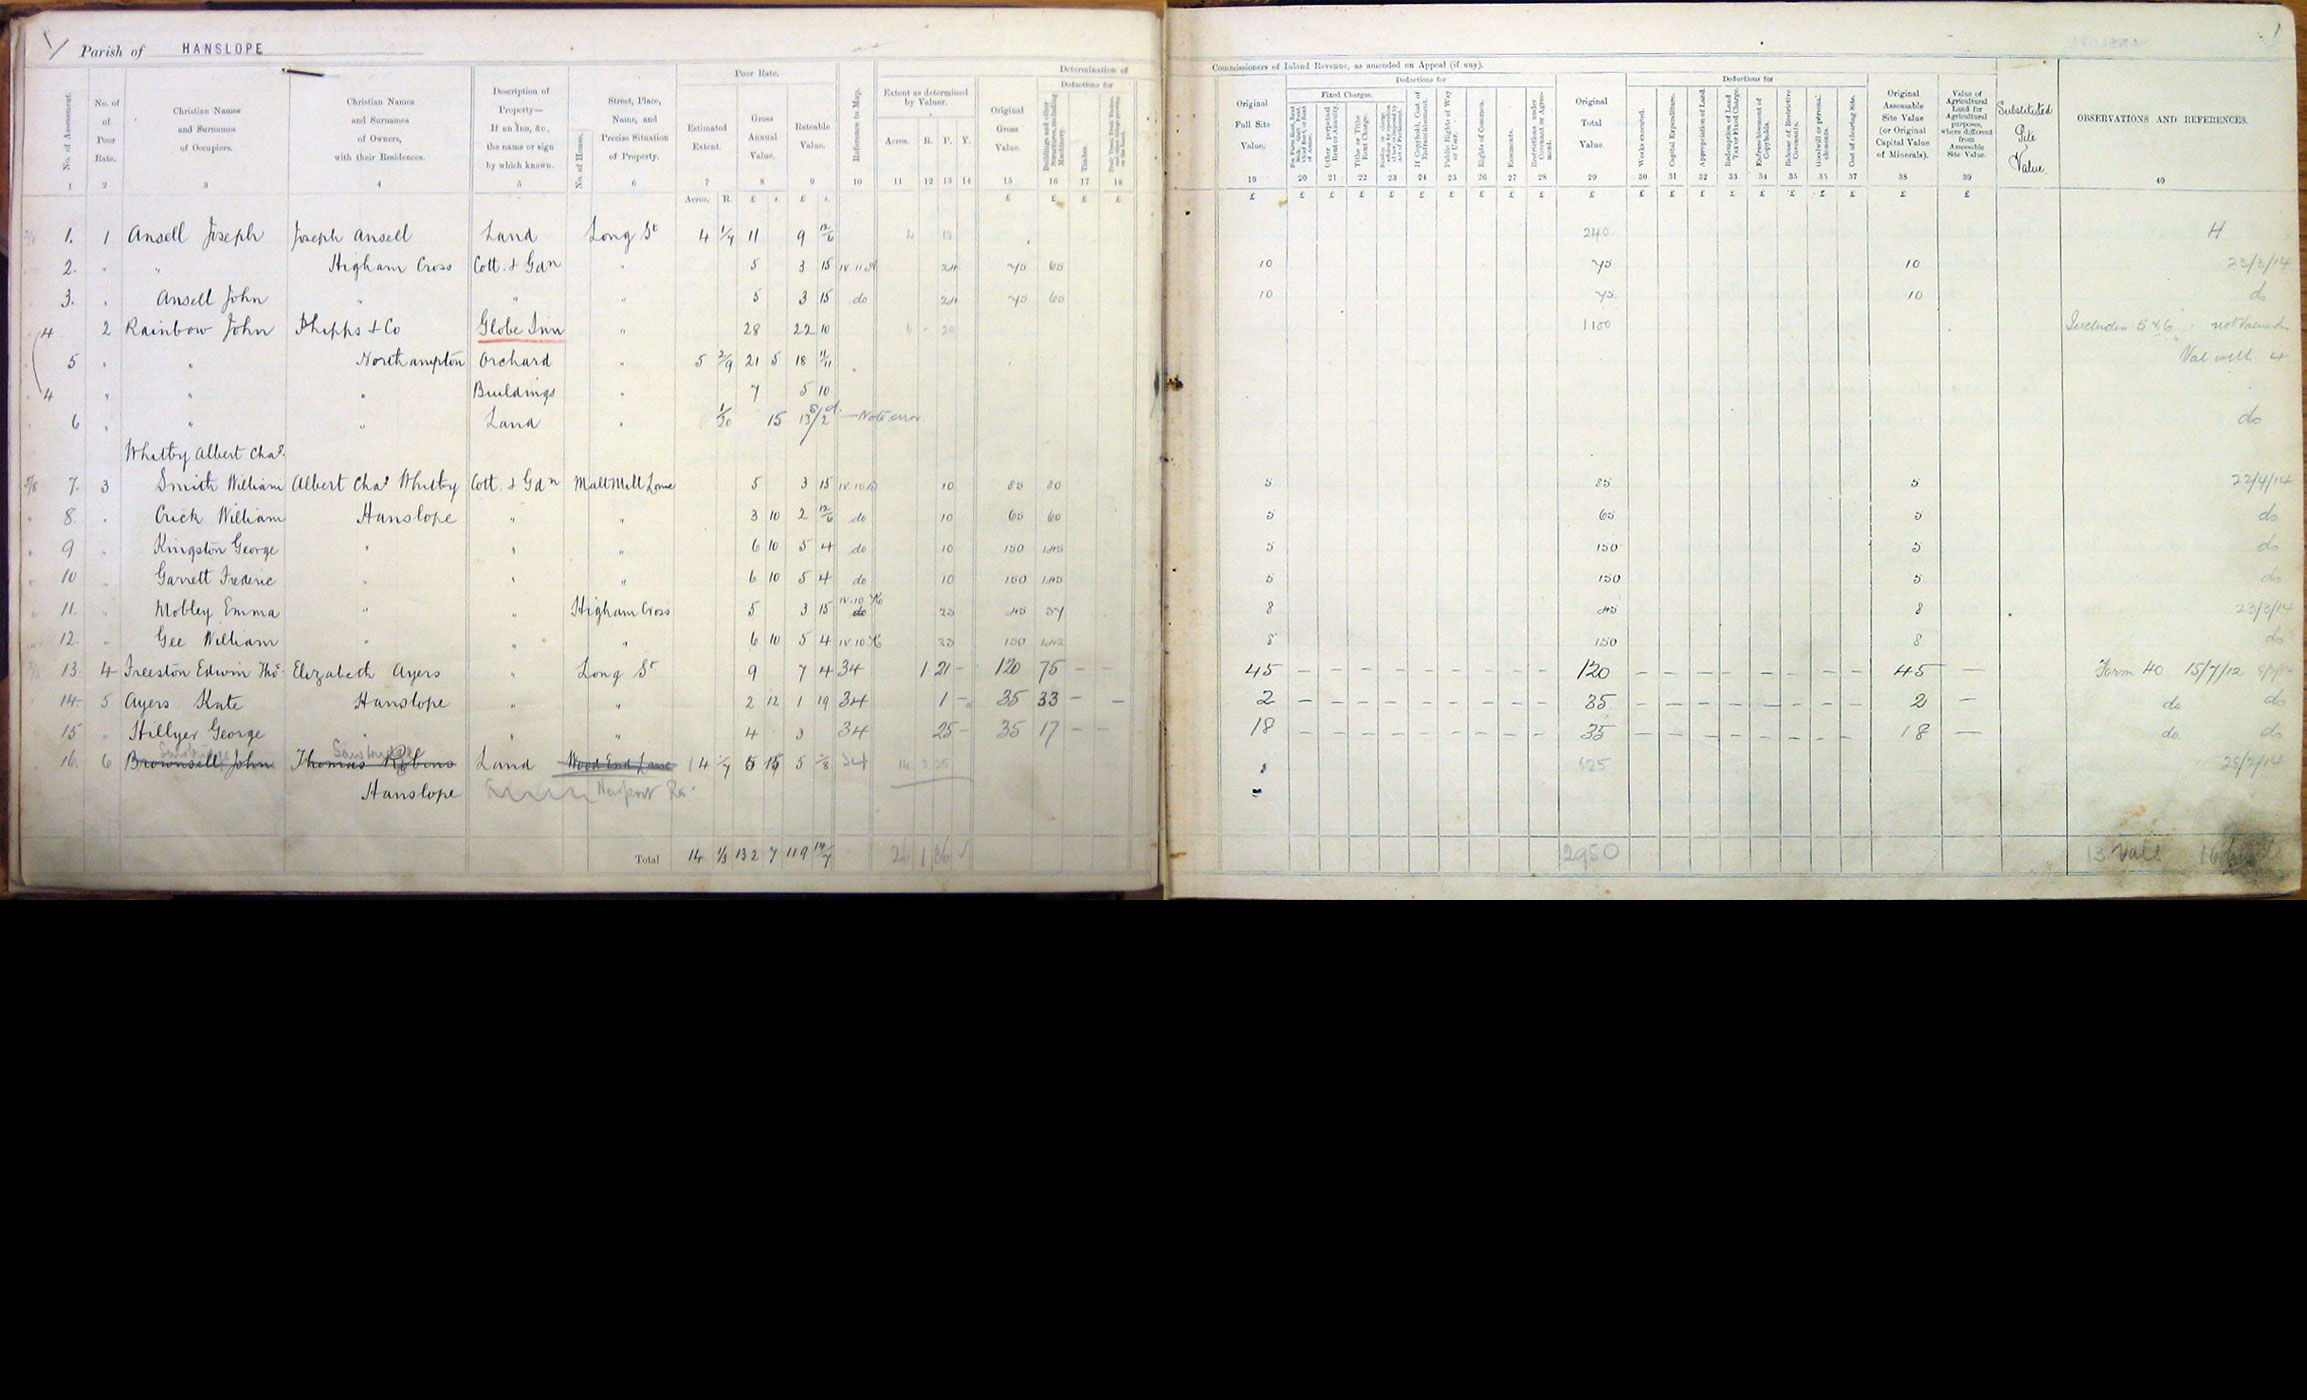 Parish of HANSLOPE
1
Poor Rate.
Determination of
Commissioners of Inland Revenue, as amended on Appeal (if any).
No. of Assessment.
No. of Poor Rate.
Christian Names and Surnames of Occupiers.
Christian Names and Surnames of Owners, with their Residences.
Description of Property— If an Inn, &c., the name or sign by which known.
No. of House.
Street, Place, Name, and Precise Situation of Property.
Estimated Extent.
Gross Annual Value.
Rateable Value.
Reference to Map.
Extent as determined by Valuer.
Acres. R. P. Y.
Original Gross Value.
Deductions for
Buildings and other Structures, including Machinery.
Timber.
Original Full Site Value.
Deductions for
Fixed Charges.
Other perpetual Rent or Annuity.
Tithe or Tithe Rent Charge.
If Copyhold, Cost of Enfranchisement.
Public Rights of Way or User.
Rights of Common.
Easements.
Restrictions under Covenant or Agreement.
Original Total Value.
Deductions for
Works executed.
Capital Expenditure.
Appropriation of Land.
Redemption of Land Tax or Fixed Charge.
Enfranchisement of Copyholds.
Release of Restrictive Covenants.
Goodwill or personal elements.
Cost of clearing Site.
Original Assessable Site Value (or Original Capital Value of Minerals).
Value of Agricultural Land for Agricultural purposes, where different from Assessable Site Value.
Substituted Site Value
OBSERVATIONS AND REFERENCES.
1 2 3 4 5 6 7 8 9 10 11 12 13 14 15 16 17 18 19 20 21 22 23 24 25 26 27 28 29 30 31 32 33 34 35 36 37 38 39 40
Acres. R. £ s. £ s. £ £ £ £ £ £ £ £ £ £ £ £ £ £ £ £ £ £ £ £ £ £ £ £ £
1. 1 Ansell Joseph Joseph Ansell Land Long St 4 1/4 11 9 12/6 4 10 240 H
2. " " Higham Cross Cott. & Gdn " 5 3 15 24 75 65 10 75 10 23/3/14
3. " Ansell John " " " 5 3 15 do 24 75 65 10 75 10 do
4 2 Rainbow John Phipps & Co Globe Inn " 28 22 10 6 - 20 1100 Includes 5 & 6
5 " " Northampton Orchard " 5 2/9 21 5 18 11/11 Val with 4
4 " " " Buildings " 7 5 10
6 " " " Land " 1/20 15 13/2 — Note error do
Whitby Albert Chas.
7. 3 Smith William Albert Chas Whitby Cott. & Gdn Malt Mill Lane 5 3 15 10 85 80 5 85 5 22/4/14
8. " Crick William Hanslope " " 3 10 2 12/6 do 10 65 60 5 65 5 do
9 " Kingston George " " " 6 10 5 4 do 10 150 145 5 150 5 do
10 " Garrett Frederic " " " 6 10 5 4 do 10 150 145 5 150 5 do
11. " Mobley Emma " " Higham Cross 5 3 15 do 25 45 37 8 45 8 23/3/14
12. " Gee William " " " 6 10 5 4 25 150 142 8 150 8 do
13. 4 Freeston Edwin Thos. Elizabeth Ayers " Long St 9 7 4 34 1 21 - 120 75 - - 45 120 45 — Form 40 15/7/12
14. 5 Ayers Kate Hanslope " " 2 12 1 19 34 1 - 35 33 - - 2 35 2 — do do
15 " Hillyer George " " " 4 3 34 25 - 35 17 - - 18 35 18 — do do
16. 6 Brownsell John Thomas Robins Land Wood End Lane 4 1/7 6 15 5 34 625 25/2/14
Hanslope Newport Rd.
Total 14 1/3 132 7 119 14/7 26 1 36 2950 13 Vals 16